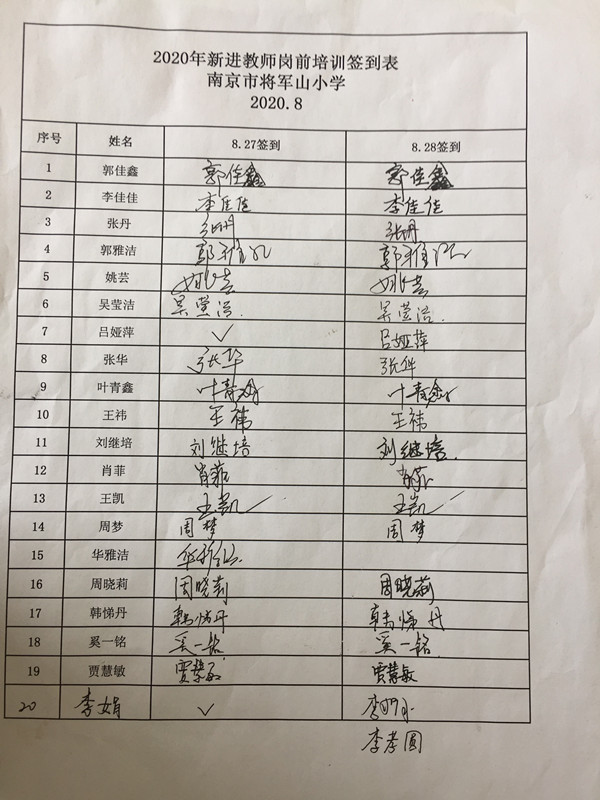 2020年新进教师岗前培训签到表
南京市将军山小学
2020.8
序号 姓名 8.27签到 8.28签到
1 郭佳鑫 郭佳鑫 郭佳鑫
2 李佳佳 李佳佳 李佳佳
3 张丹 张丹 张丹
4 郭雅洁 郭雅洁 郭雅洁
5 姚芸 姚芸 姚芸
6 吴莹洁 吴莹洁. 吴莹洁.
7 吕娅萍 ✓ 吕娅萍
8 张华 张华 张华
9 叶青鑫 叶青鑫 叶青鑫
10 王祎 王祎 王祎
11 刘继培 刘继培 刘继培.
12 肖菲 肖菲 肖菲
13 王凯 王凯 王凯
14 周梦 周梦 周梦
15 华雅洁 华雅洁
16 周晓莉 周晓莉 周晓莉
17 韩悌丹 韩悌丹 韩悌丹
18 奚一铭 奚一铭 奚一铭
19 贾慧敏 贾慧敏 贾慧敏
20 李娟 ✓ 李娟
李孝圆